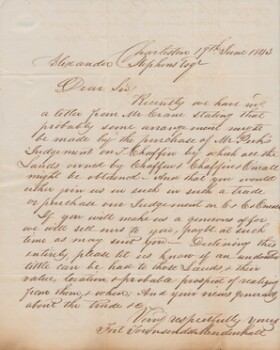 Charleston 19th June 1843
Alexander Stephens Esqr
Dear Sir
Recently we have
a letter from Mr Crane stating that
probably some arrangement might
be made by the purchase of Mr Park's
Judgement on Chaffin by which all the
Lands owned by Chaffin &
might be obtained. And that you would
either join us in such a trade
or purchase our Judgement on C & C
If you will make us a generous offer
we will sell ours to you, payble at such
time as may suit you — Declining this
entirely please let us know if an undoubted
title can be had to those Lands & their
value, location & probable prospect of realizing
from them & when; And your views generally
about the trade &c
Very respectfully yours
Fort Townsend & Mendenhall